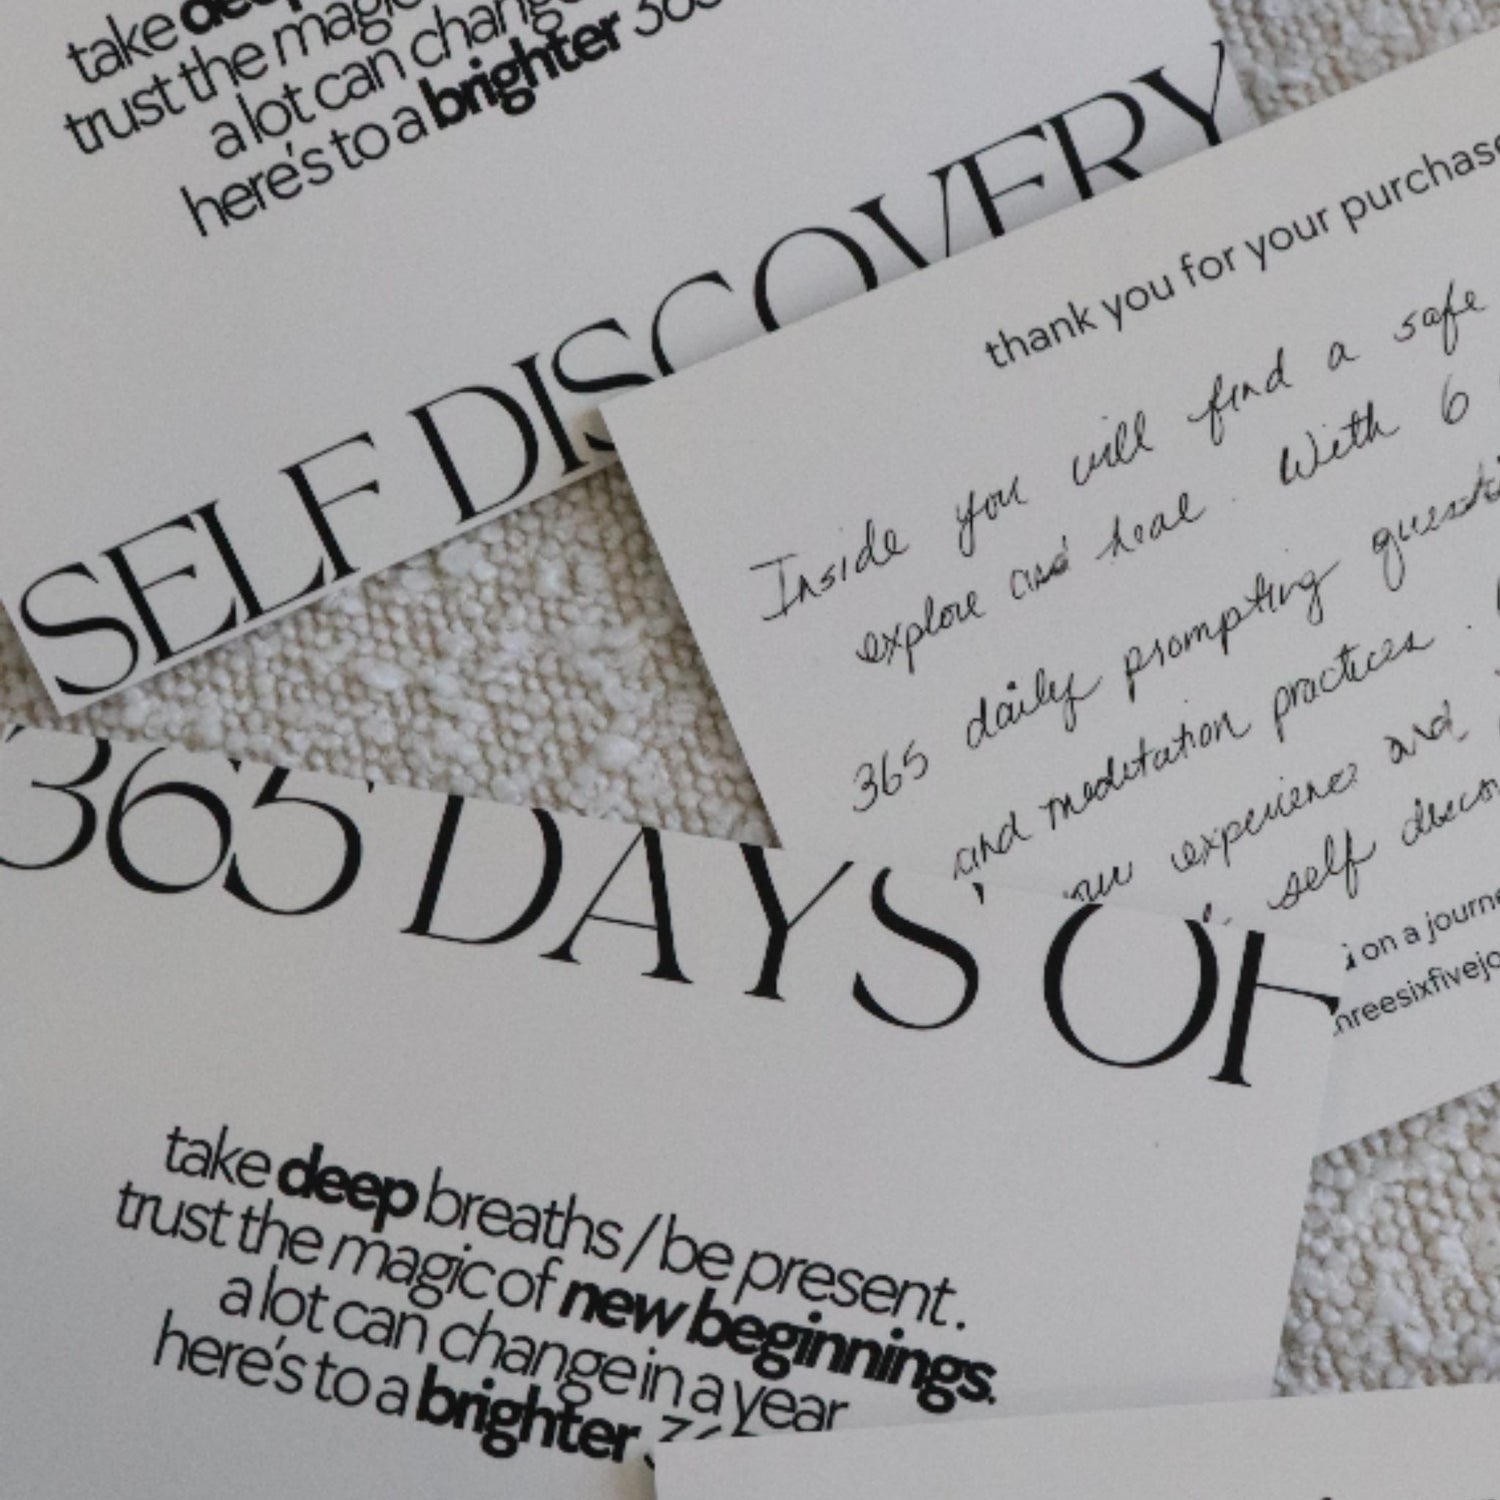 take deep
trust the magic
a lot can change
here's to a brighter 365
SELF DISCOVERY
thank you for your purchase
Inside you will find a safe
explore and heal. With 6
365 daily prompting
and meditation practices.
experience and
self
on a journe
365 DAYS OF
take deep breaths / be present.
trust the magic of new beginnings.
a lot can change in a year
here's to a brighter